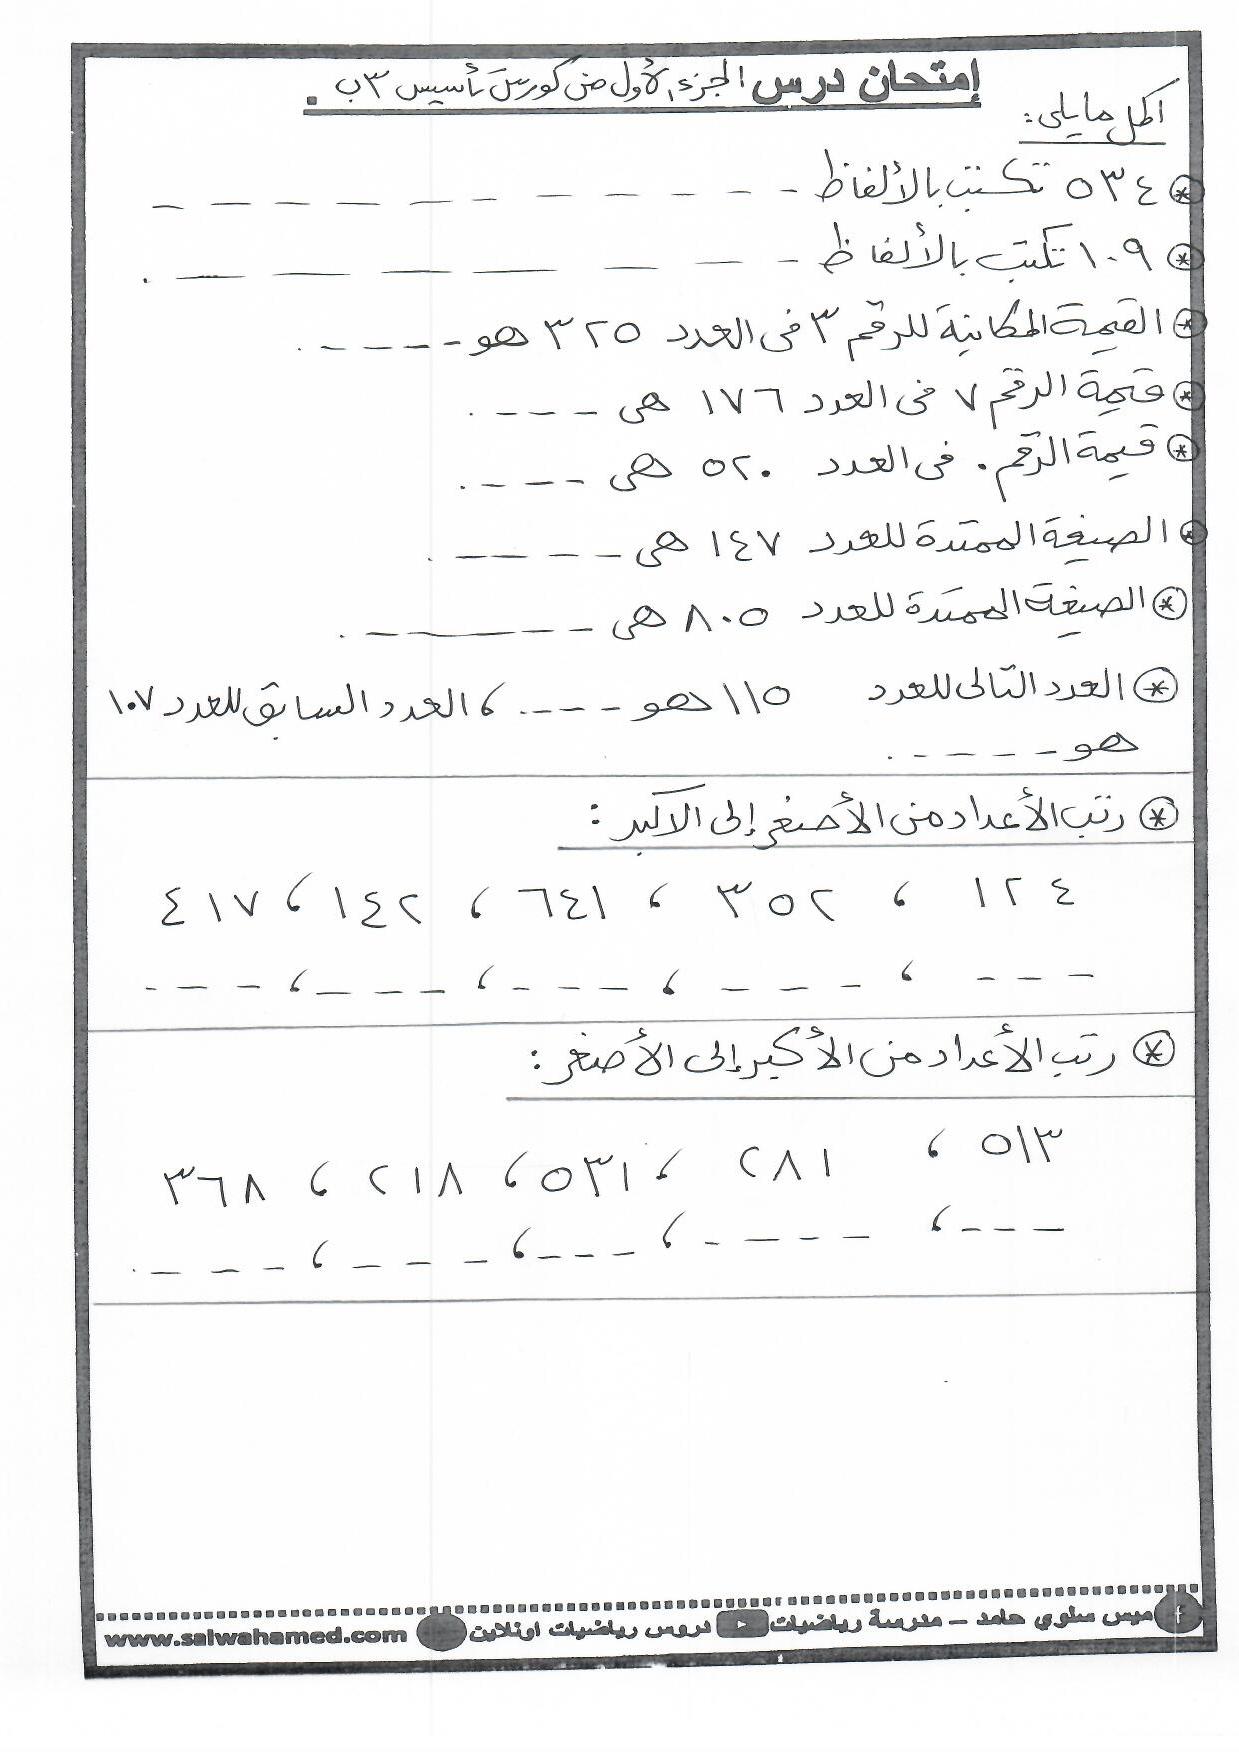 إمتحان درس الجزء الأول من كورس تأسيس ٣ب .
اكمل ما يلى:
* ٥٣٤ تكتب بالألفاظ - - - - - - - - -
* ١٠٩ تكتب بالألفاظ - - - - - - - .
* القيمة المكانية للرقم ٣ فى العدد ٣٢٥ هو - - - - - .
* قيمة الرقم ٧ فى العدد ١٧٦ هى - - - - .
* قيمة الرقم ٠ فى العدد ٥٢٠ هى - - - - .
* الصيغة الممتدة للعدد ١٤٧ هى - - - - - .
* الصيغة الممتدة للعدد ٨٠٥ هى - - - - - - .
* العدد التالى للعدد ١١٥ هو - - - - . ، العدد السابق للعدد ١٠٧
هو - - - - - .
* رتب الأعداد من الأصغر إلى الاكبر :
١٢٤ ، ٣٥٢ ، ٦٤١ ، ١٤٢ ، ٤١٧
- - - ، - - - ، - - - ، - - - ، - - -
* رتب الأعداد من الأكبر إلى الأصغر :
٥١٣ ، ٢٨١ ، ٥٣١ ، ٢١٨ ، ٣٦٨
- - - ، - - - - ، - - - ، - - - ، - - - .
ميس سلوي حامد – مدرسة رياضيات دروس رياضيات اونلاين www.salwahamed.com